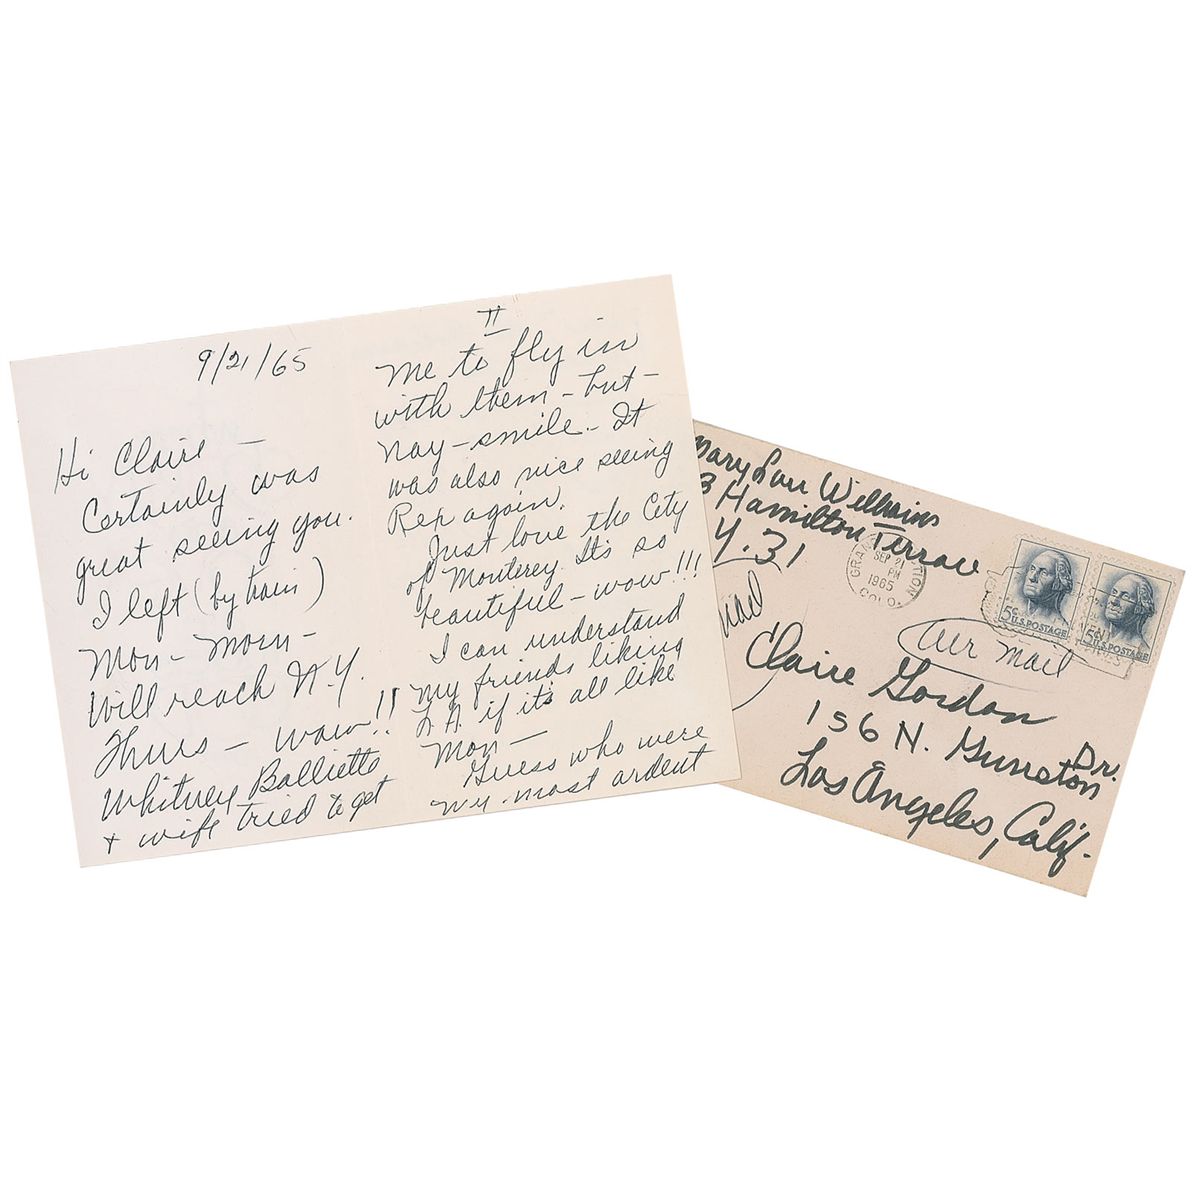 9/21/65
Hi Claire —
Certainly was
great seeing you.
I left (by train)
Mon – morn –
Will reach N.Y.
Thurs – wow!!
Whitney Balliette
+ wife tried to get
II
me to fly in
with them – but –
nay – smile. – It
was also nice seeing
Rex again.
Just love the City
of Monterey. It's so
beautiful – wow!!!
I can understand
my friends liking
L.A. if it's all like
Mon —
Guess who were
my most ardent
Mary Lou Williams
3 Hamilton Terrace
Y. 31
SEP 21
PM
1965
COLO.
5¢
U.S. POSTAGE
5¢
U.S. POSTAGE
air mail
Claire Gordon
156 N. Gunston Dr.
Los Angeles, Calif.